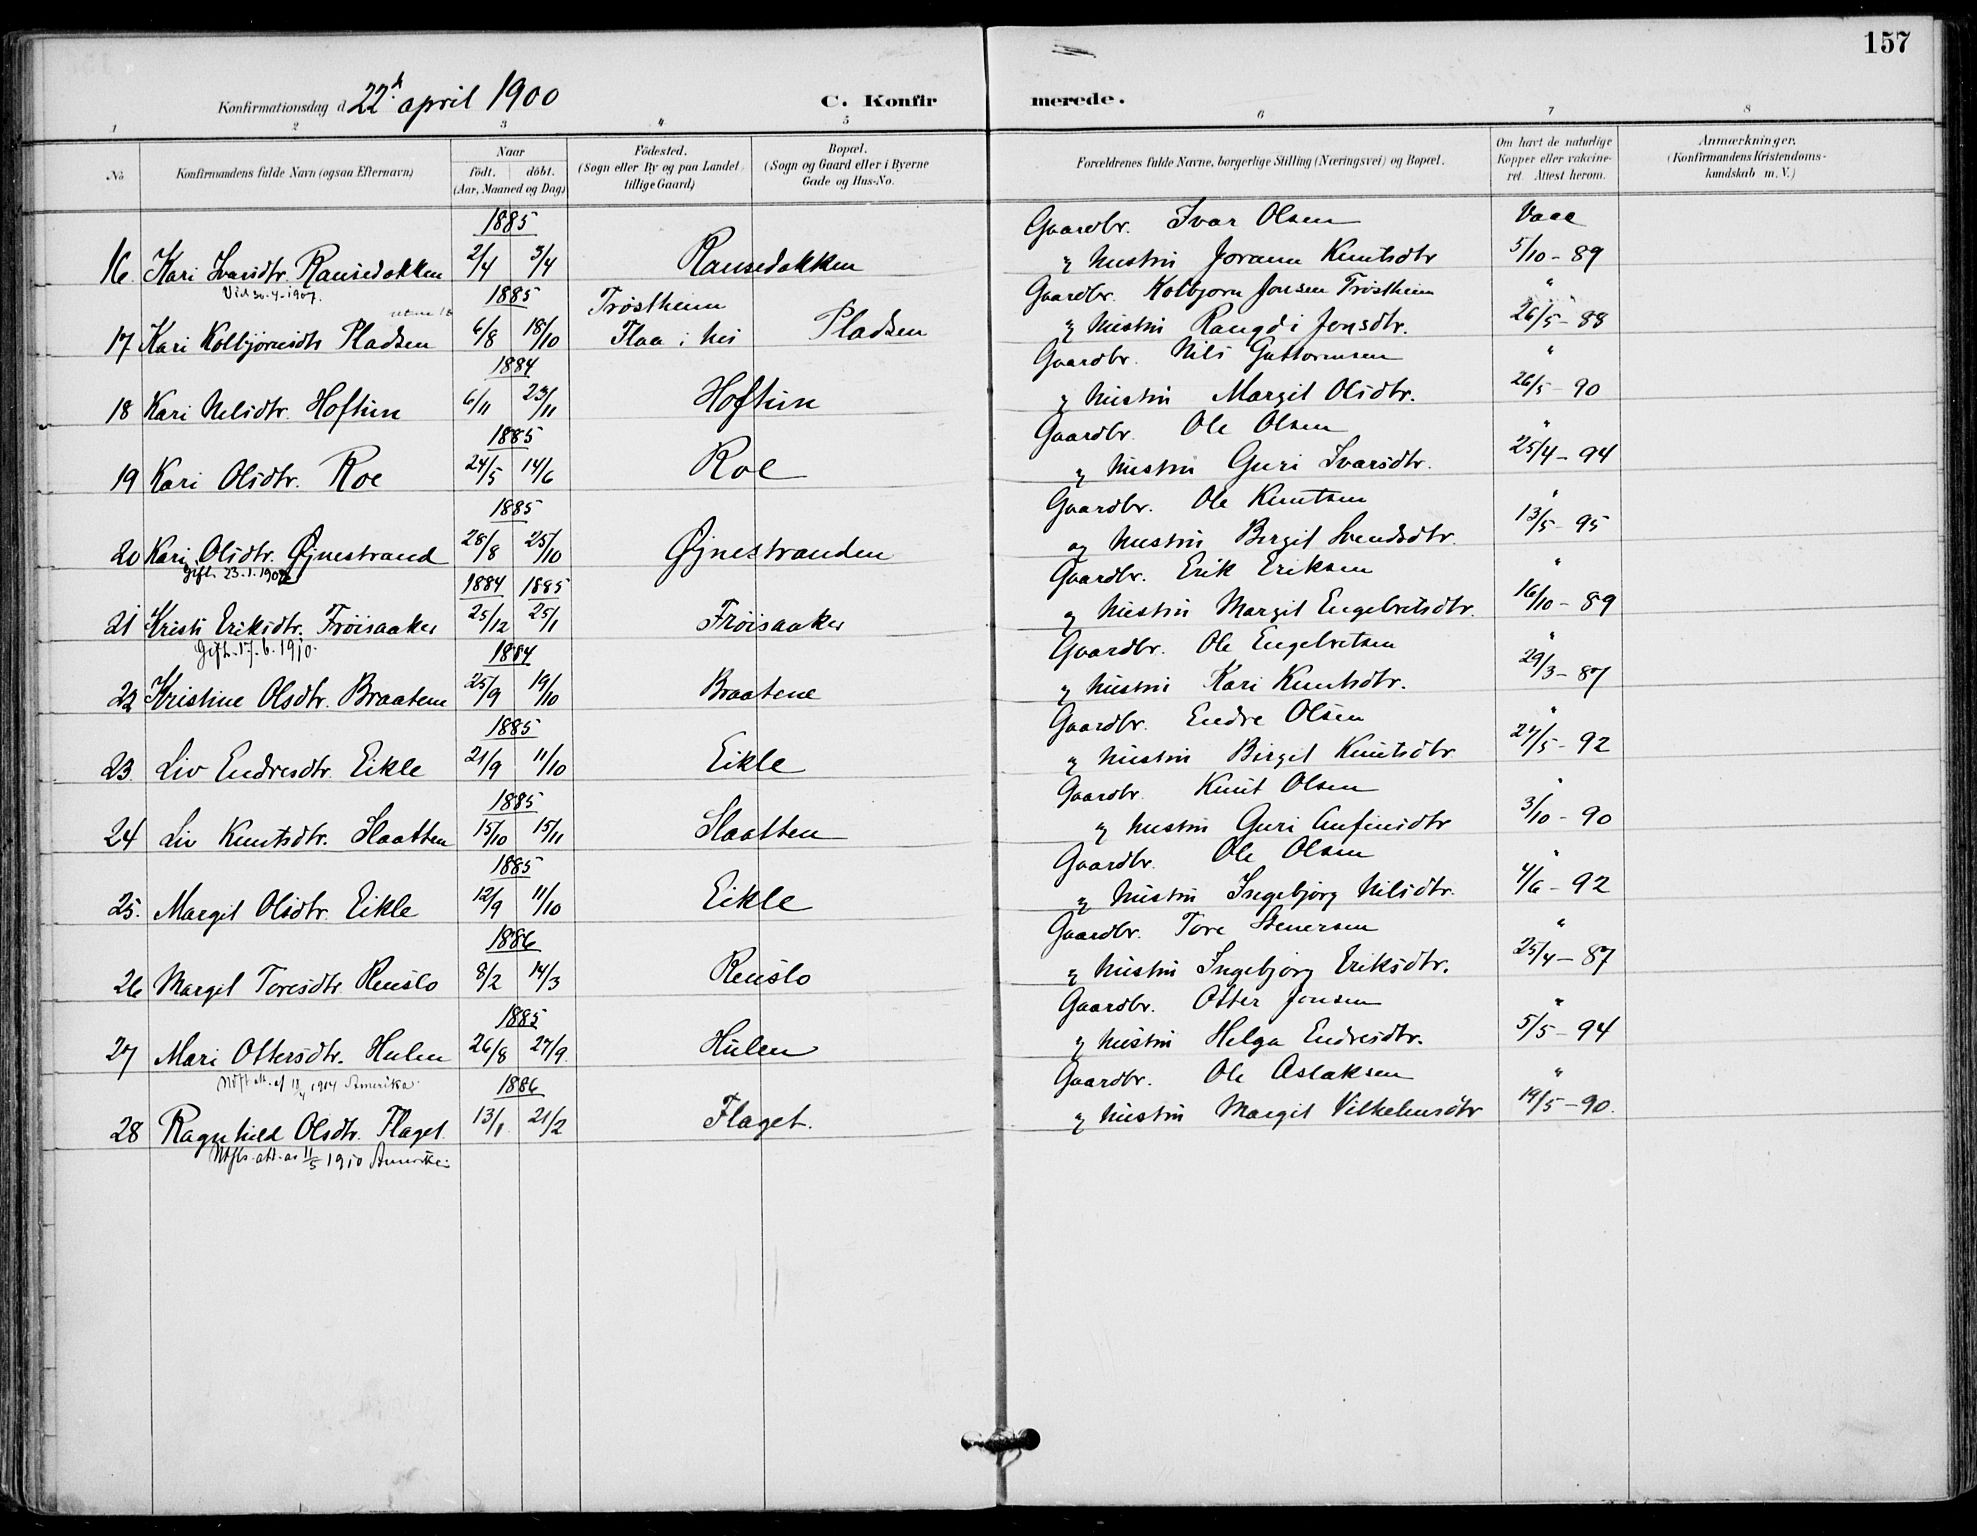 157
Konfirmationsdag d 22d april 1900
C. Konfir merede.
1 2 3 4 5 6 7 8
No. Konfirmandens fulde Navn (ogsaa Efternavn) Naar født. døbt. (Aar, Maaned og Dag) Fødested. (Sogn eller By og paa Landet tillige Gaard) Bopæl. (Sogn og Gaard eller i Byerne Gade og Hus-No. Forældrenes fulde Navne, borgerlige Stilling (Næringsvei) og Bopæl. Om havt de naturlige Kopper eller vakcineret. Attest herom. Anmærkninger. (Konfirmandens Kristendomskundskab m. V.)
1885 Gaardbr. Ivar Olsen Vacc
16. Kari Ivarsdtr. Rausedokken 2/4 3/4 Rausedokken og hustru Jorann Knutsdtr 5/10 - 89
Vid 30.4.1907.
1885 Trøstheim Gaardbr. Kolbjørn Jonsen Trøstheim "
17 Kari Kolbjørnsdtr Pladsen 6/8 18/10 Flaa i hei Pladsen og hustru Rangdi Jonsdtr. 26/5 - 88
1884 Gaardbr. Nils Guttormsen "
18 Kari Nilsdtr. Hoftun 6/11 23/11 Hoftun og hustru Margit Olsdtr. 26/5 - 90
1885 Gaardbr. Ole Olsen "
19 Kari Olsdtr. Roe 24/5 14/6 Roe og hustru Guri Ivarsdtr. 25/4 - 94
1885 Gaardbr. Ole Knutsen "
20 Kari Olsdtr. Øynestrand 28/8 25/10 Øynestranden og hustru Birgit Svendsdtr. 13/5 - 95
Gift. 23.1.1902
1884 1885 Gaardbr. Erik Eriksen "
21 Kristi Eriksdtr. Frøisaaker 25/12 25/1 Frøisaaker og hustru Margit Engebretsdtr. 16/10 - 89
Gift. 17.6.1910.
1884 Gaardbr. Ole Engebretsen "
22 Kristine Olsdtr. Braatene 25/9 19/10 Braatene og hustru Kari Knutsdtr. 29/3 - 87
1885 Gaardbr. Endre Olsen "
23. Liv Endresdtr. Eikle 21/9 11/10 Eikle og hustru Birgit Knutsdtr 27/5 - 92
1885 Gaardbr. Knut Olsen "
24 Liv Knutsdtr. Slaatten 15/10 15/11 Slaatten og hustru Guri Anfinsdtr 3/10 - 90
1885 Gaardbr. Ole Olsen "
25. Margit Olsdtr. Eikle 12/9 11/10 Eikle og hustru Ingebjørg Nilsdtr. 4/6 - 92
1886 Gaardbr. Tore Stenersen "
26 Margit Toresdtr. Renslo 8/2 14/3 Renslo og hustru Ingebjørg Eriksdtr. 25/4 - 87
1885 Gaardbr. Otter Jonsen "
27 Mari Ottersdtr. Hulen 26/8 27/9. Hulen og hustru Helga Endresdtr. 5/5 - 94
1914 Amerika.
1886 Gaardbr. Ole Aslaksen "
28 Ragnhild Olsdtr. Flaget. 13/1 21/2 Flaget. og hustru Margit Vilhelmsdtr 19/5 - 90.
11/5 1910 Amerika.